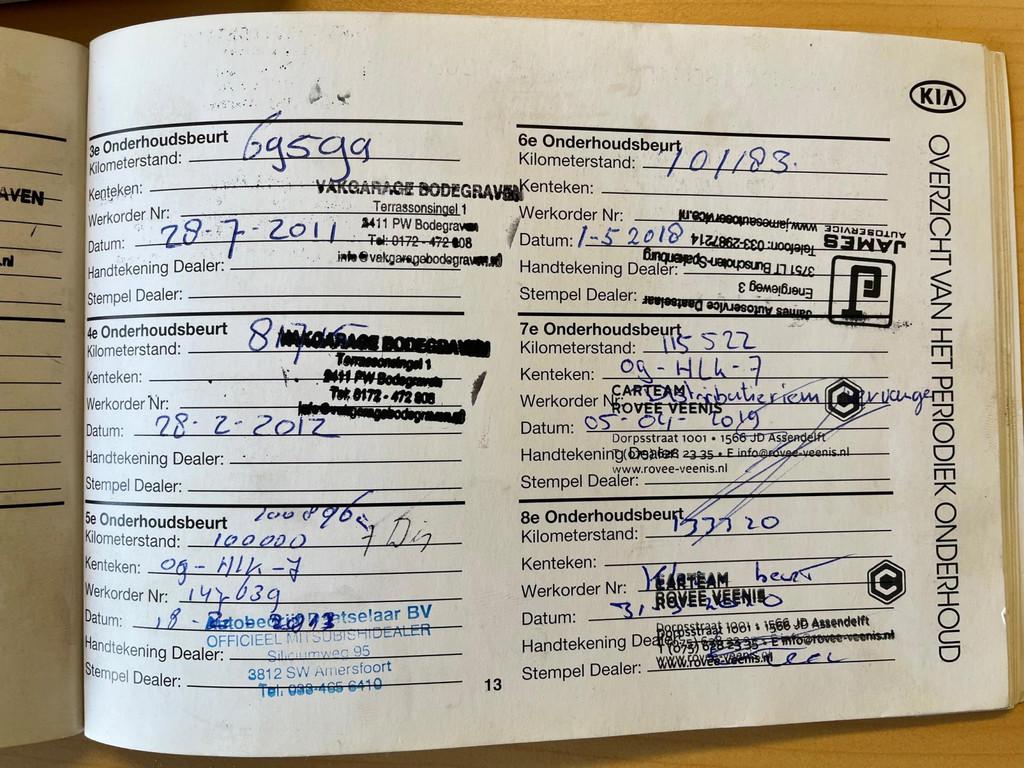 AVEN
.nl
3e Onderhoudsbeurt
Kilometerstand: 69599
Kenteken:
VAKGARAGE BODEGRAVEN
Terrassonsingel 1
Werkorder Nr:
2411 PW Bodegraven
Datum: 28-7-2011
Tel: 0172-472 808
info@vakgaragebodegraven.nl
Handtekening Dealer:
Stempel Dealer:
4e Onderhoudsbeurt
Kilometerstand:
VAKGARAGE BODEGRAVEN
Terrassonsingel 1
Kenteken:
2411 PW Bodegraven
Tel: 0172-472 808
Werkorder Nr:
info@vakgaragebodegraven.nl
Datum: 28-2-2012
Handtekening Dealer:
Stempel Dealer:
5e Onderhoudsbeurt
Kilometerstand: 100000
Kenteken: 09-HLK-7
Werkorder Nr: 147639
Datum: 2013
Autobedrijf Daatselaar BV
OFFICIEEL MITSUBISHIDEALER
Handtekening Dealer:
Siliciumweg 95
3812 SW Amersfoort
Stempel Dealer:
Tel. 033-465 6410
13
KIA
OVERZICHT VAN HET PERIODIEK ONDERHOUD
6e Onderhoudsbeurt
Kilometerstand: 101183.
Kenteken:
Werkorder Nr:
Datum: 1-5 2018
Handtekening Dealer:
Stempel Dealer:
James Autoservice Daatselaar
Energieweg 3
3751 LT Bunschoten-Spakenburg
Telefoon: 033-2987214
www.jamesautoservice.nl
JAMES
AUTOSERVICE
7e Onderhoudsbeurt
Kilometerstand: 115522
Kenteken: 09-HLK-7
Werkorder Nr: Distributieriem vervangen
CARTEAM
ROVEE VEENIS
Datum: 05-04-2019
Dorpsstraat 1001 • 1566 JD Assendelft
Handtekening Dealer:
T (075) 628 23 35 • E info@rovee-veenis.nl
www.rovee-veenis.nl
Stempel Dealer:
8e Onderhoudsbeurt
Kilometerstand: 133320
Kenteken:
Werkorder Nr: beurt
CARTEAM
ROVEE VEENIS
Datum: 2020
Dorpsstraat 1001 • 1566 JD Assendelft
Handtekening Dealer:
T (075) 628 23 35 • E info@rovee-veenis.nl
www.rovee-veenis.nl
Stempel Dealer: